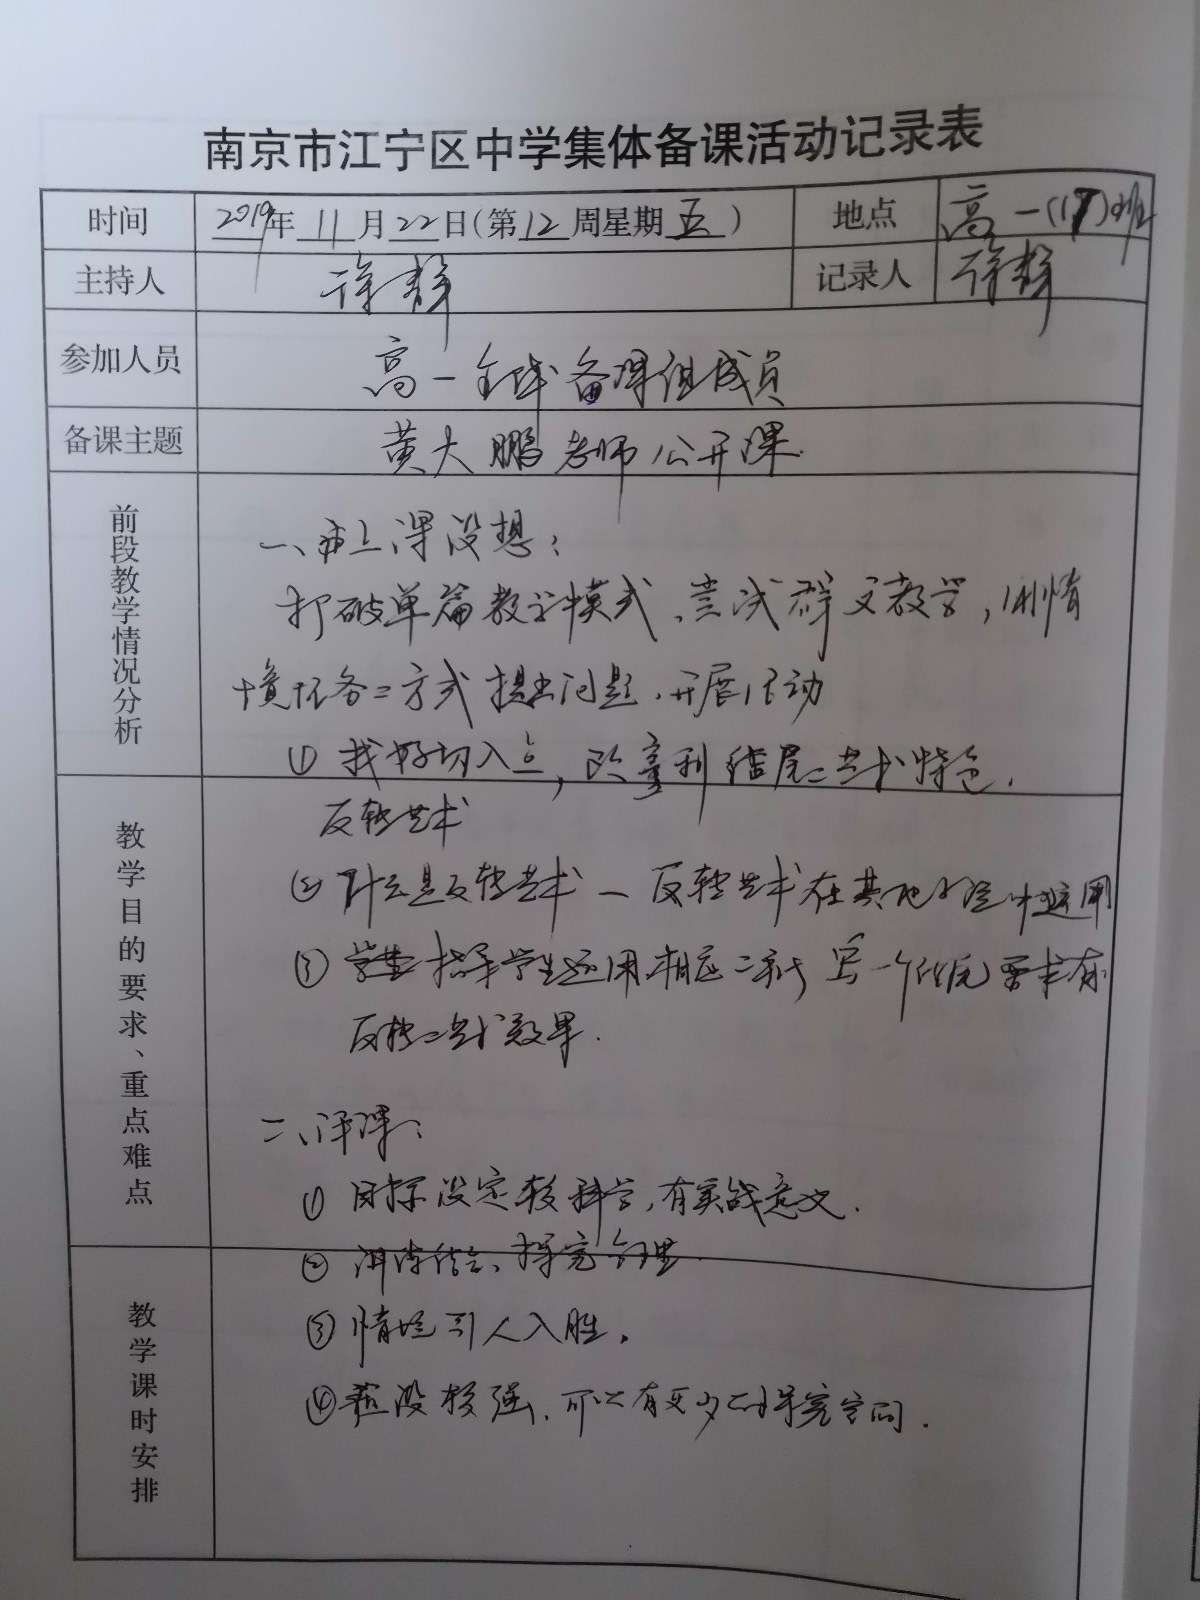 南京市江宁区中学集体备课活动记录表
时间 2019年 11月22日(第12周星期五) 地点 高一(17)班
主持人 徐静 记录人 徐静
参加人员 高一全体备课组成员
备课主题 黄大鹏老师公开课.
前段教学情况分析
一、上课设想:
打破单篇教学模式、尝试群文教学,用情
境任务二方式提出问题、开展活动
① 找好切入点,欧亨利结尾二艺术特色.
教学目的要求、重点难点
反转艺术
② 什么是反转艺术—反转艺术在其他小说中运用
③ 指导学生运用相应二 写一个结尾要求有
反转二艺术效果.
二、评课:
① 目标设定较科学,有实战意义.
② 探究合理.
教学课时安排
③ 情境引人入胜.
④ 预设较强、可以有更多二探究空间.